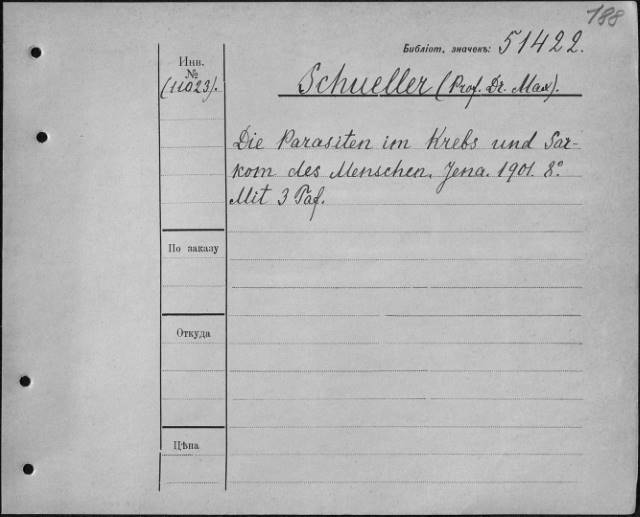 188
Библіот. значекъ: 51422.
Инв.
№
(11023).
Schueller (Prof. Dr. Max).
Die Parasiten im Krebs und Sar-
kom des Menschen. Jena. 1901. 8°.
Mit 3 Taf.
По заказу
Откуда
Цѣна